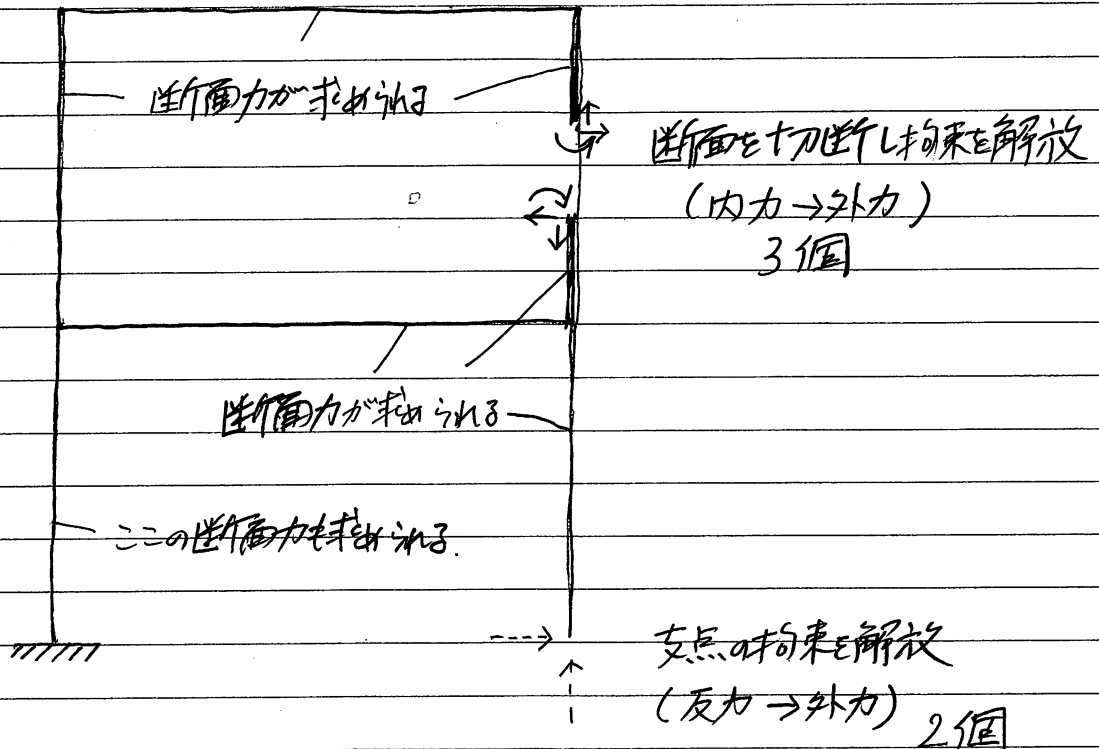 断面力が求められる
断面を切断し拘束を解放
(内力→外力)
3個
断面力が求められる
ここの断面力も求められる.
支点の拘束を解放
(反力→外力)
2個